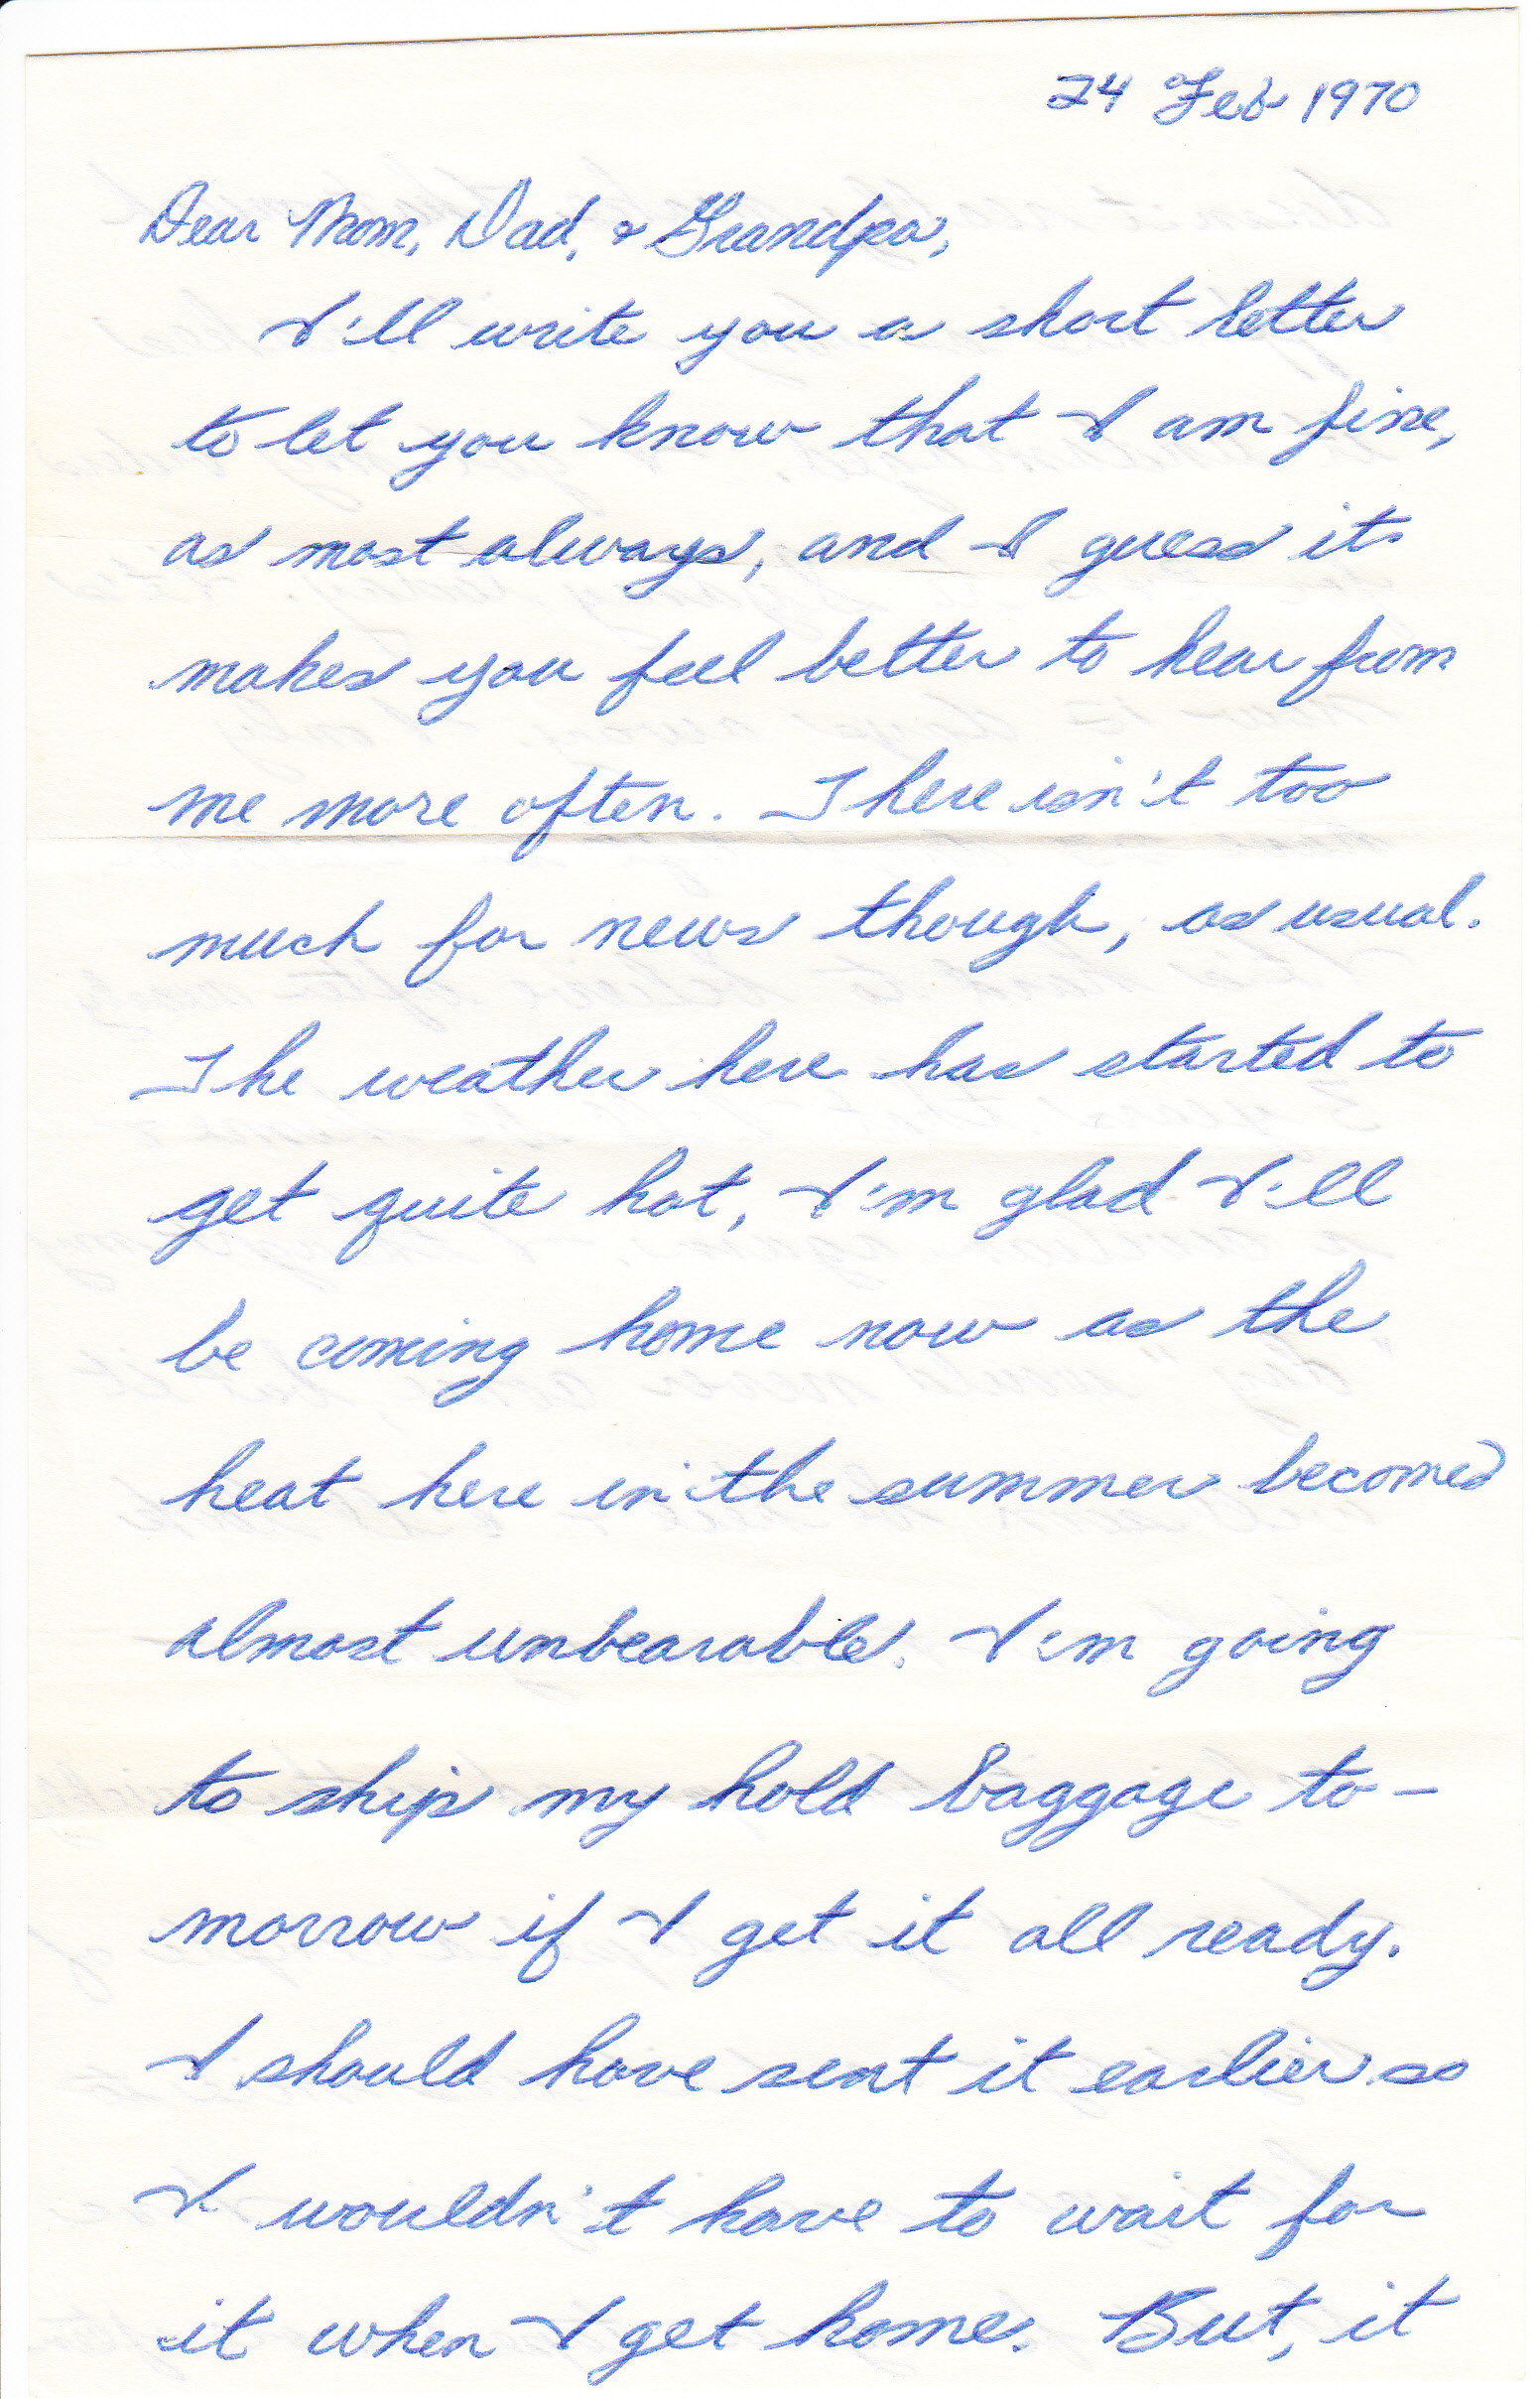 24 Feb 1970
Dear Mom, Dad, & Grandpa,
I'll write you a short letter
to let you know that I am fine,
as most always, and I guess it
makes you feel better to hear from
me more often. There isn't too
much for news though, as usual.
The weather here has started to
get quite hot, I'm glad I'll
be coming home now as the
heat here in the summer becomes
almost unbearable. I'm going
to ship my hold baggage to-
morrow if I get it all ready.
I should have sent it earlier so
I wouldn't have to wait for
it when I get home. But, it